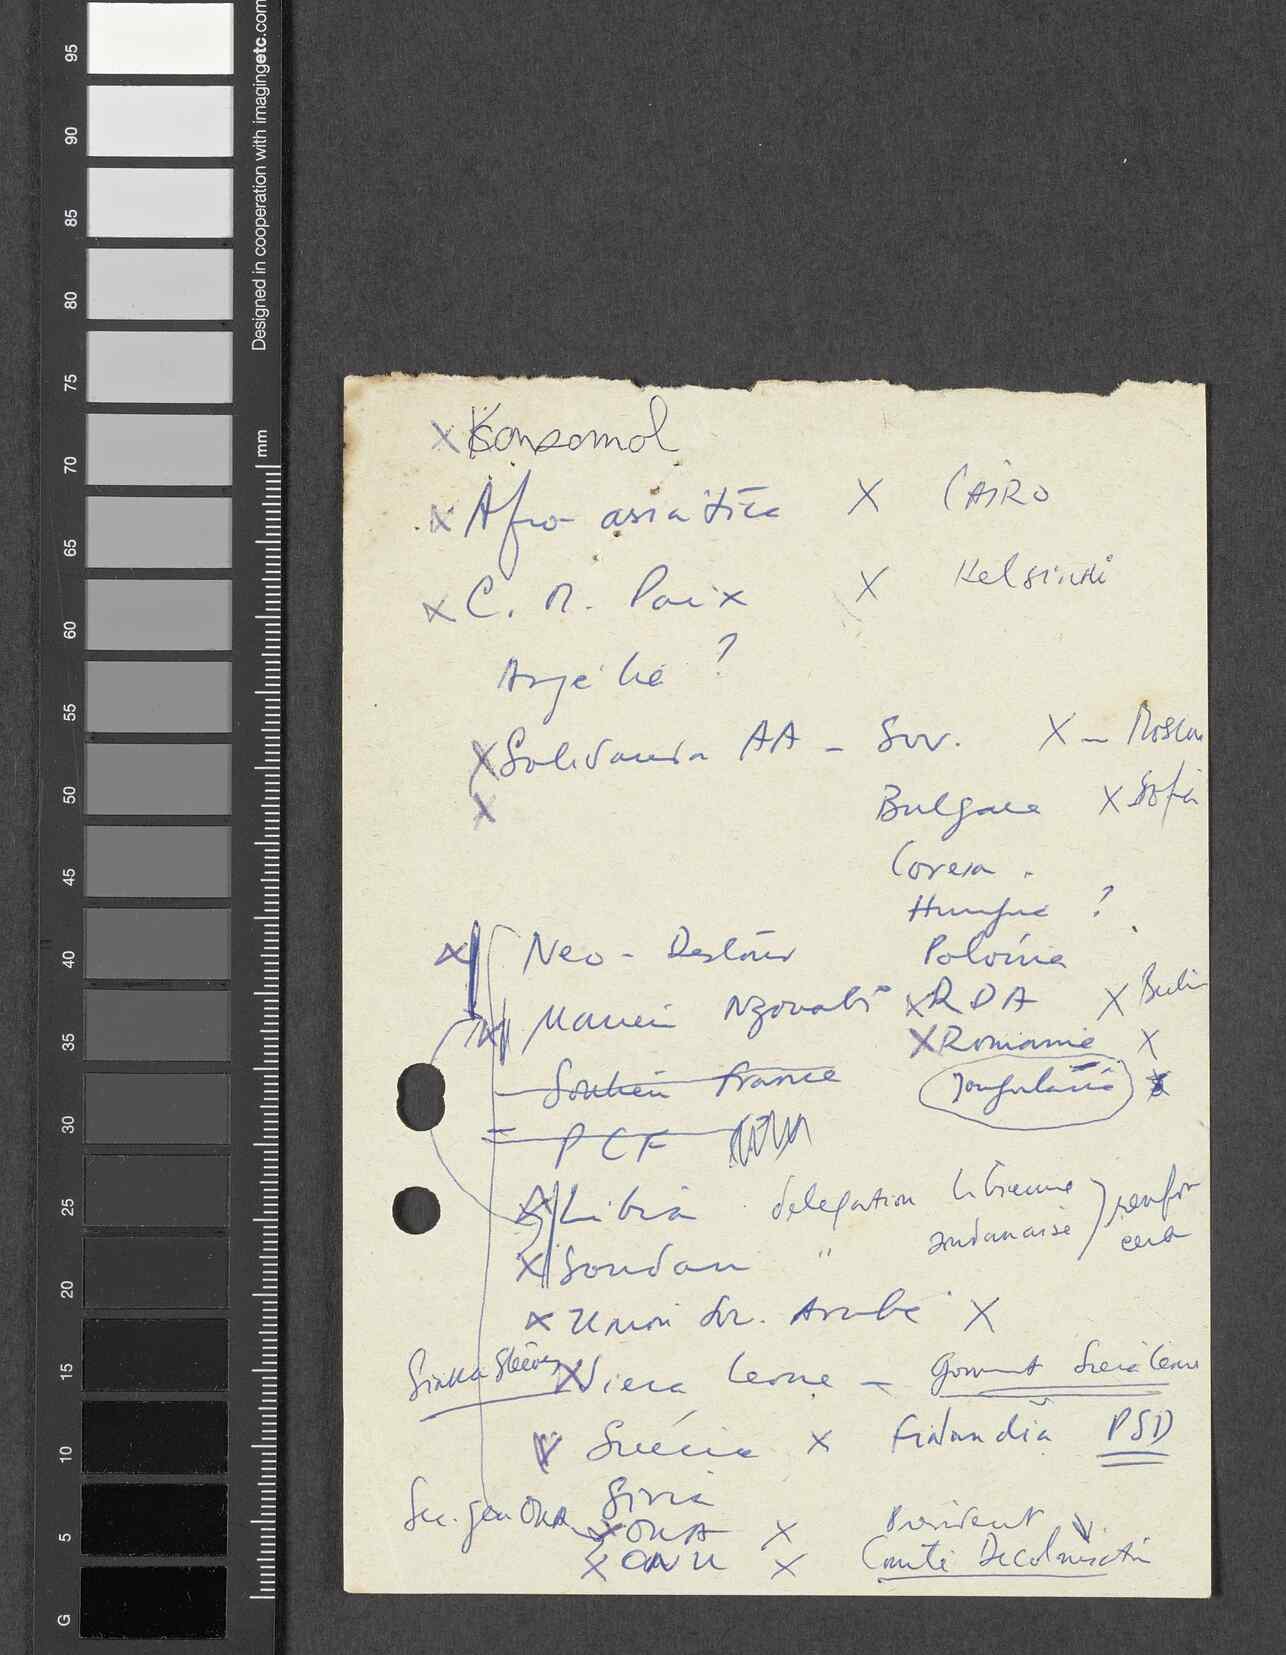 95
90
85
80
75
70
65
60
55
50
45
40
35
30
25
20
15
10
5
G
Designed in cooperation with imagingetc.com
mm
X Konsomol
X Afro-asiática X CAIRO
X C. M. Paix X Helsinki
Argélie ?
X Solidaried AA - Sov. X - Moscou
X Bulgarie X Sofia
Coreia.
Hungrie ?
X Neo-Destour Polónia
X Nzouabi X RDA X Berlin
X Romanie X
Soutien France Jougoslavia X
PCF
X Libia délégation libienne
X Soudan " soudanaise
X Union Sov. Arabe X
X Siera Leone - Govmnt Siera Leone
Suécia X Finlandia PSD
Siria
Sec. gen OUA X OUA X President
X ONU X Comité Decolonisation